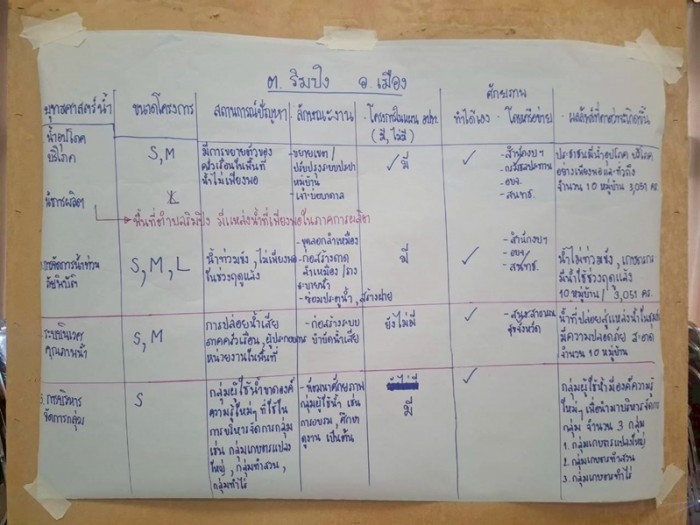 ต. ริมปิง อ. เมือง
ยุทธศาสตร์น้ำ
ขนาดโครงการ
สถานการณ์ปัญหา
ลักษณะงาน
โครงการในแผน อปท.
(มี, ไม่มี)
ศักยภาพ
ทำได้เอง
โดยเครือข่าย
ผลลัพธ์ที่คาดว่าจะเกิดขึ้น
น้ำอุปโภค
บริโภค
S, M
มีการขยายตัวของ
ครัวเรือนในพื้นที่
น้ำไม่เพียงพอ
-ขยายเขต /
ปรับปรุงระบบประปา
หมู่บ้าน
-เจาะบ่อบาดาล
✓ มี
✓
- สำนักงบฯ
- อบจ.
- สนทช.
ประชาชนมีน้ำอุปโภค บริโภค
อย่างเพียงพอและทั่วถึง
จำนวน 10 หมู่บ้าน 3,051 คร.
น้ำการผลิต
พื้นที่ตำบลริมปิง มีแหล่งน้ำที่เพียงพอในภาคการผลิต
การจัดการน้ำท่วม
S, M, L
น้ำท่วมขัง, ไม่เพียงพอ
ในช่วงฤดูแล้ง
- ขุดลอกลำเหมือง
- ก่อสร้างดาด
ลำเหมือง /ราง
ระบายน้ำ
- ซ่อมประตูน้ำ, สร้างฝาย
มี
✓
- สำนักงบฯ
- อบจ
- สนทช.
น้ำไม่ท่วมขัง, เกษตรกร
มีน้ำใช้ช่วงฤดูแล้ง
10 หมู่บ้าน / 3,051 คร.
ระบบนิเวศ
คุณภาพน้ำ
S, M
การปล่อยน้ำเสีย
ภาคครัวเรือน, ผู้ประกอบการ
หน่วยงานในพื้นที่
- ก่อสร้างระบบ
บำบัดน้ำเสีย
ยังไม่มี
✓
น้ำที่ปล่อยสู่แหล่งน้ำในชุมชน
มีความปลอดภัย สะอาด
จำนวน 10 หมู่บ้าน
การบริหาร
จัดการกลุ่ม
S
กลุ่มผู้ใช้น้ำขาดองค์
ความรู้ใหม่ๆ ที่ใช้ใน
การบริหารจัดการกลุ่ม
เช่น กลุ่มเกษตรแปลง
ใหญ่, กลุ่มทำสวน,
กลุ่มทำไร่
- พัฒนาศักยภาพ
กลุ่มผู้ใช้น้ำ, เช่น
การอบรม, ศึกษา
ดูงาน เป็นต้น
มี
✓
กลุ่มผู้ใช้น้ำมีองค์ความรู้
ใหม่ๆ เพื่อนำมาบริหารจัดการ
กลุ่ม จำนวน 3 กลุ่ม
1. กลุ่มเกษตรแปลงใหญ่
2. กลุ่มเกษตรทำสวน
3. กลุ่มเกษตรทำไร่